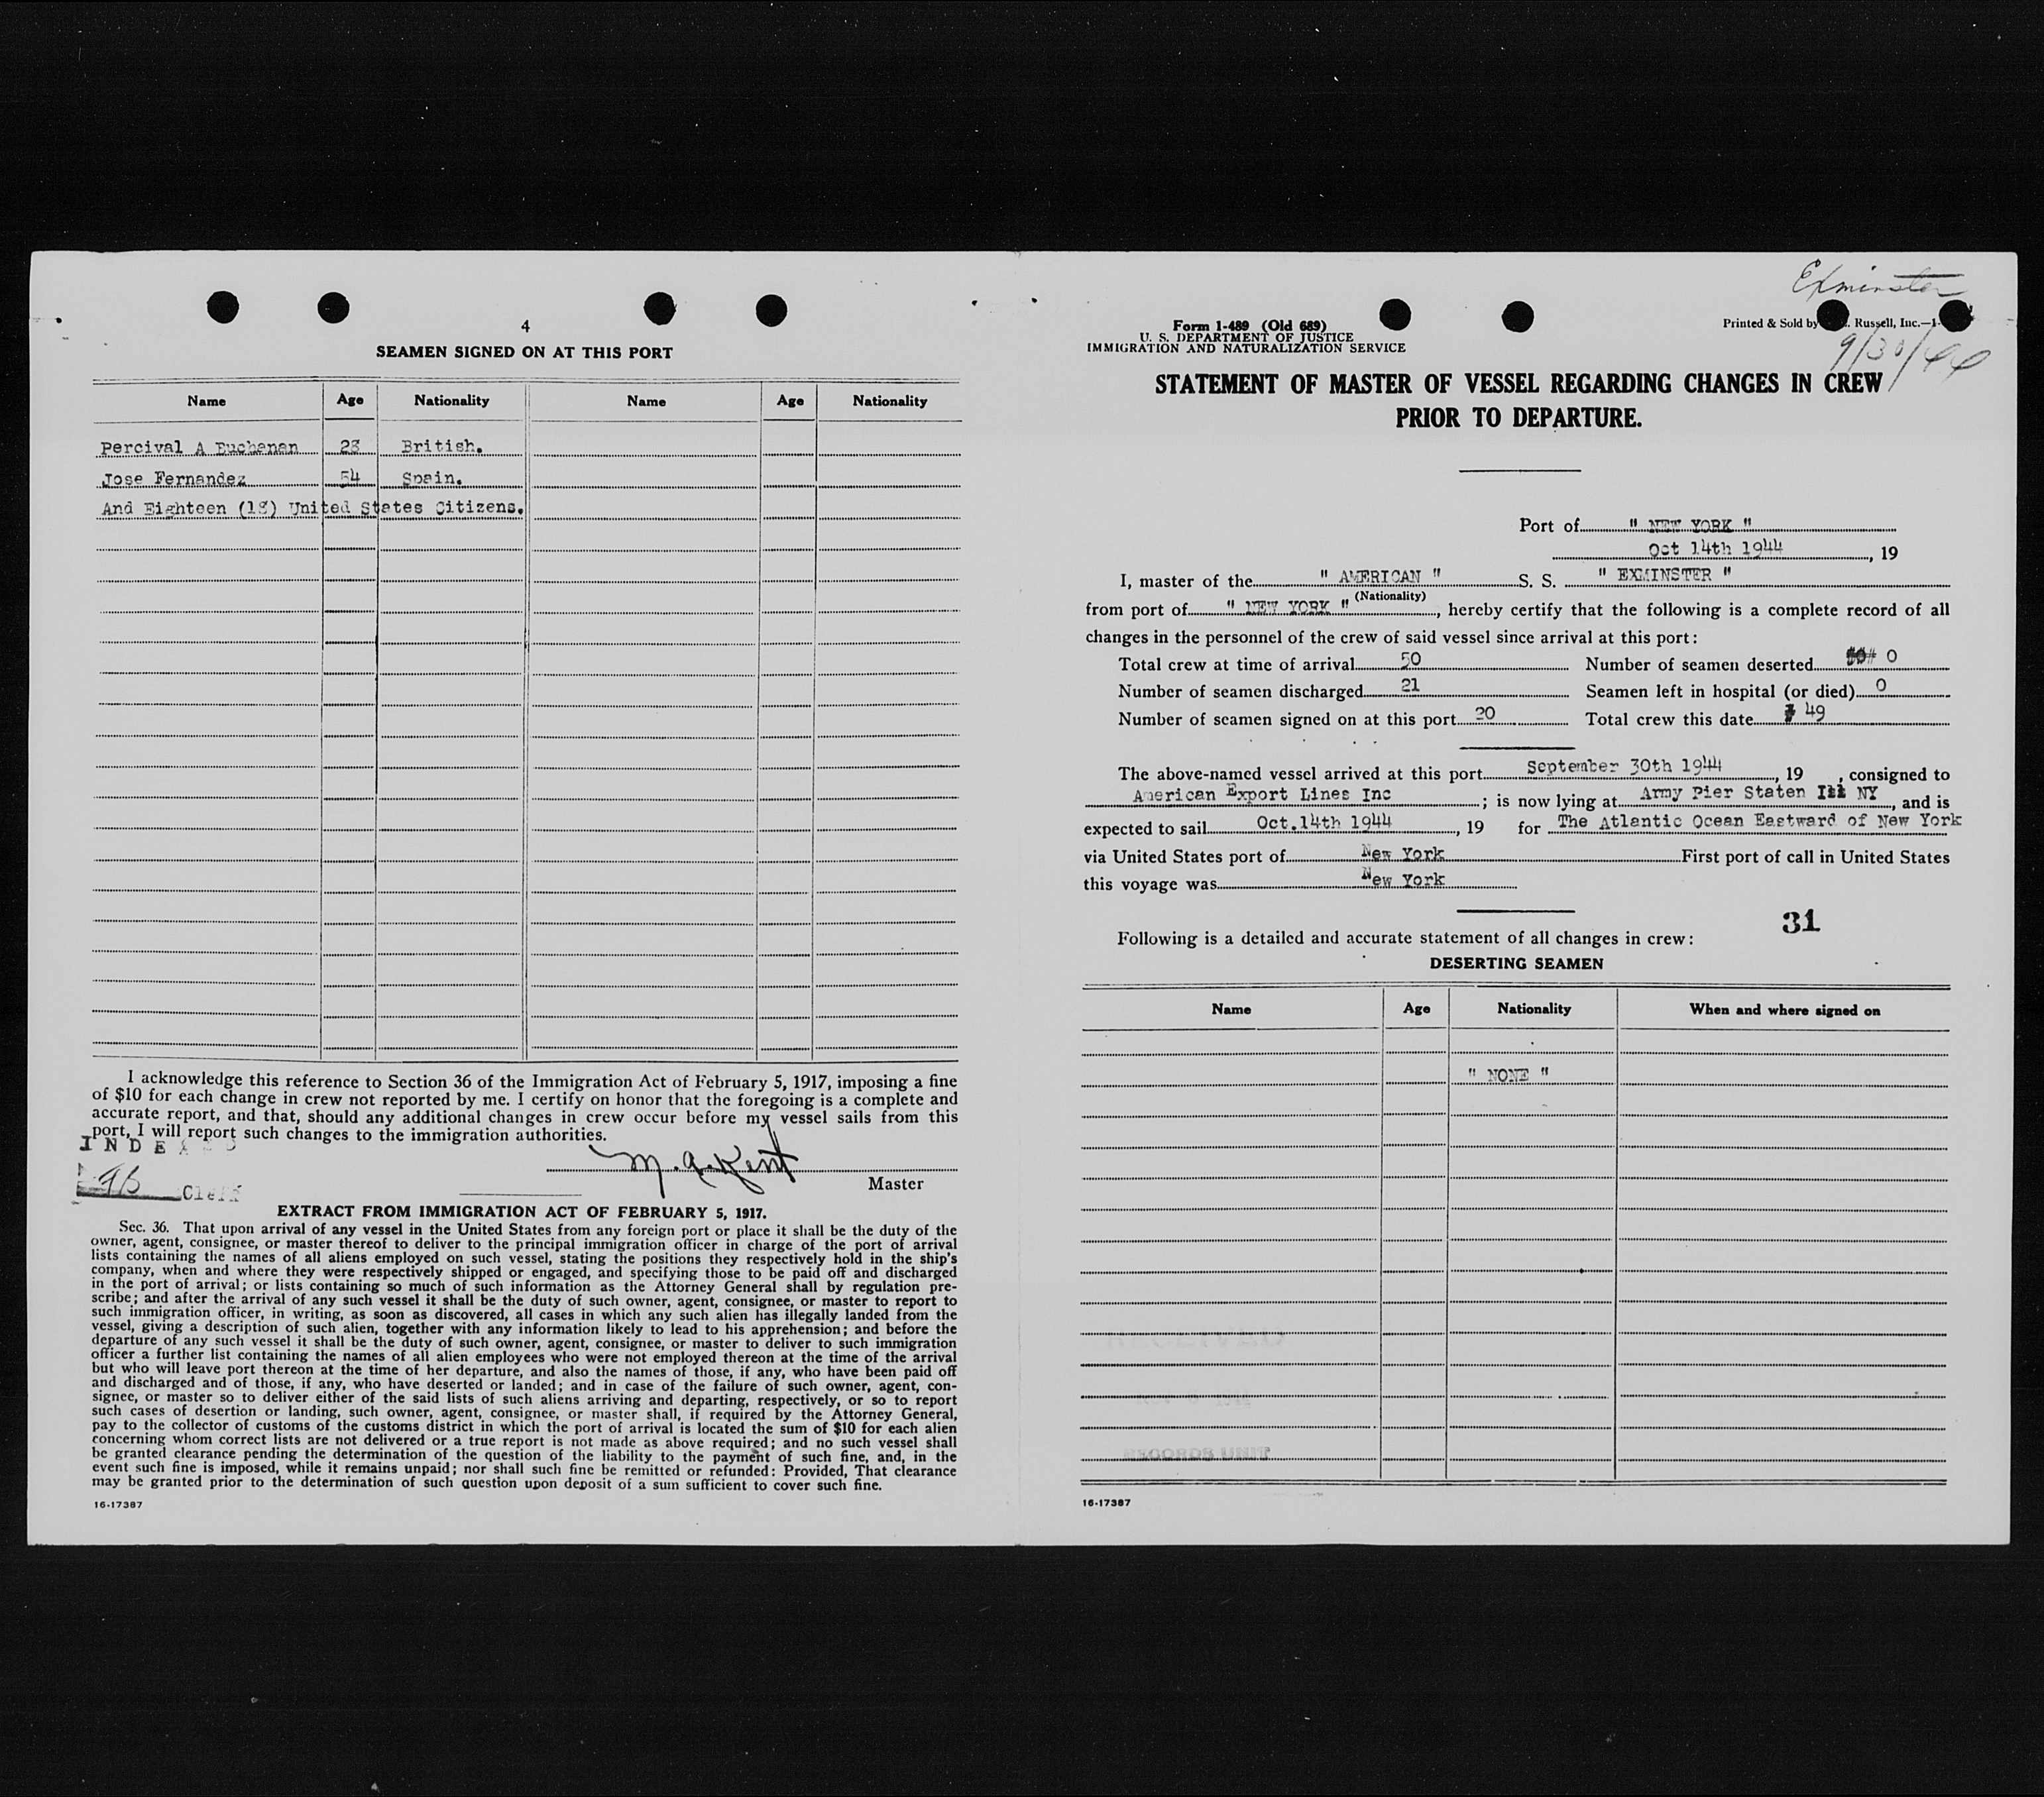 4
SEAMEN SIGNED ON AT THIS PORT
Name Age Nationality Name Age Nationality
Percival A Buchanan 28 British.
Jose Fernandez 54 Spain.
And Eighteen (18) United States Citizens.
I acknowledge this reference to Section 36 of the Immigration Act of February 5, 1917, imposing a fine
of $10 for each change in crew not reported by me. I certify on honor that the foregoing is a complete and
accurate report, and that, should any additional changes in crew occur before my vessel sails from this
port, I will report such changes to the immigration authorities.
INDEXED
M. A. Kent
Clerk
Master
EXTRACT FROM IMMIGRATION ACT OF FEBRUARY 5, 1917.
Sec. 36. That upon arrival of any vessel in the United States from any foreign port or place it shall be the duty of the
owner, agent, consignee, or master thereof to deliver to the principal immigration officer in charge of the port of arrival
lists containing the names of all aliens employed on such vessel, stating the positions they respectively hold in the ship's
company, when and where they were respectively shipped or engaged, and specifying those to be paid off and discharged
in the port of arrival; or lists containing so much of such information as the Attorney General shall by regulation pre-
scribe; and after the arrival of any such vessel it shall be the duty of such owner, agent, consignee, or master to report to
such immigration officer, in writing, as soon as discovered, all cases in which any such alien has illegally landed from the
vessel, giving a description of such alien, together with any information likely to lead to his apprehension; and before the
departure of any such vessel it shall be the duty of such owner, agent, consignee, or master to deliver to such immigration
officer a further list containing the names of all alien employees who were not employed thereon at the time of the arrival
but who will leave port thereon at the time of her departure, and also the names of those, if any, who have been paid off
and discharged and of those, if any, who have deserted or landed; and in case of the failure of such owner, agent, con-
signee, or master so to deliver either of the said lists of such aliens arriving and departing, respectively, or so to report
such cases of desertion or landing, such owner, agent, consignee, or master shall, if required by the Attorney General,
pay to the collector of customs of the customs district in which the port of arrival is located the sum of $10 for each alien
concerning whom correct lists are not delivered or a true report is not made as above required; and no such vessel shall
be granted clearance pending the determination of the question of the liability to the payment of such fine, and, in the
event such fine is imposed, while it remains unpaid; nor shall such fine be remitted or refunded: Provided, That clearance
may be granted prior to the determination of such question upon deposit of a sum sufficient to cover such fine.
16-17387
Exminster
Form I-489 (Old 689)
U. S. DEPARTMENT OF JUSTICE
IMMIGRATION AND NATURALIZATION SERVICE
Printed & Sold by Russell, Inc.
9/30/44
STATEMENT OF MASTER OF VESSEL REGARDING CHANGES IN CREW
PRIOR TO DEPARTURE.
Port of " NEW YORK "
Oct 14th 1944, 19
I, master of the " AMERICAN " S. S. " EXMINSTER "
(Nationality)
from port of " NEW YORK ", hereby certify that the following is a complete record of all
changes in the personnel of the crew of said vessel since arrival at this port:
Total crew at time of arrival 50 Number of seamen deserted 0
Number of seamen discharged 21 Seamen left in hospital (or died) 0
Number of seamen signed on at this port 20 Total crew this date 49
The above-named vessel arrived at this port September 30th 1944, 19 , consigned to
American Export Lines Inc ; is now lying at Army Pier Staten NY, and is
expected to sail Oct.14th 1944, 19 for The Atlantic Ocean Eastward of New York
via United States port of New York First port of call in United States
this voyage was New York
31
Following is a detailed and accurate statement of all changes in crew:
DESERTING SEAMEN
Name Age Nationality When and where signed on
" NONE "
RECEIVED
RECORDS UNIT
16-17387